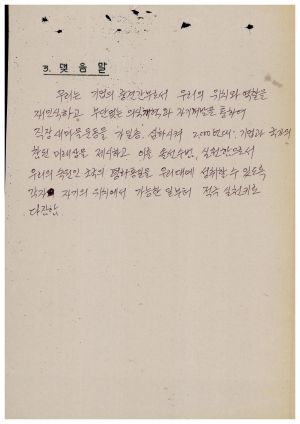 3. 맺 음 말
우리는 기업의 중견간부로서 우리의 위치와 역할을
재인식하고 부단없는 의식개혁과 자기계발을 통하여
직장 새마을운동을 가일층 심화시켜 2,000년대 기업과 국가의
참된 미래상을 제시하고 이를 솔선수범, 실천함으로서
우리의 숙원인 조국의 평화통일을 우리대에 성취할 수 있도록
각자 자기의 위치에서 가능한 일부터 적극 실천키로
다짐함.